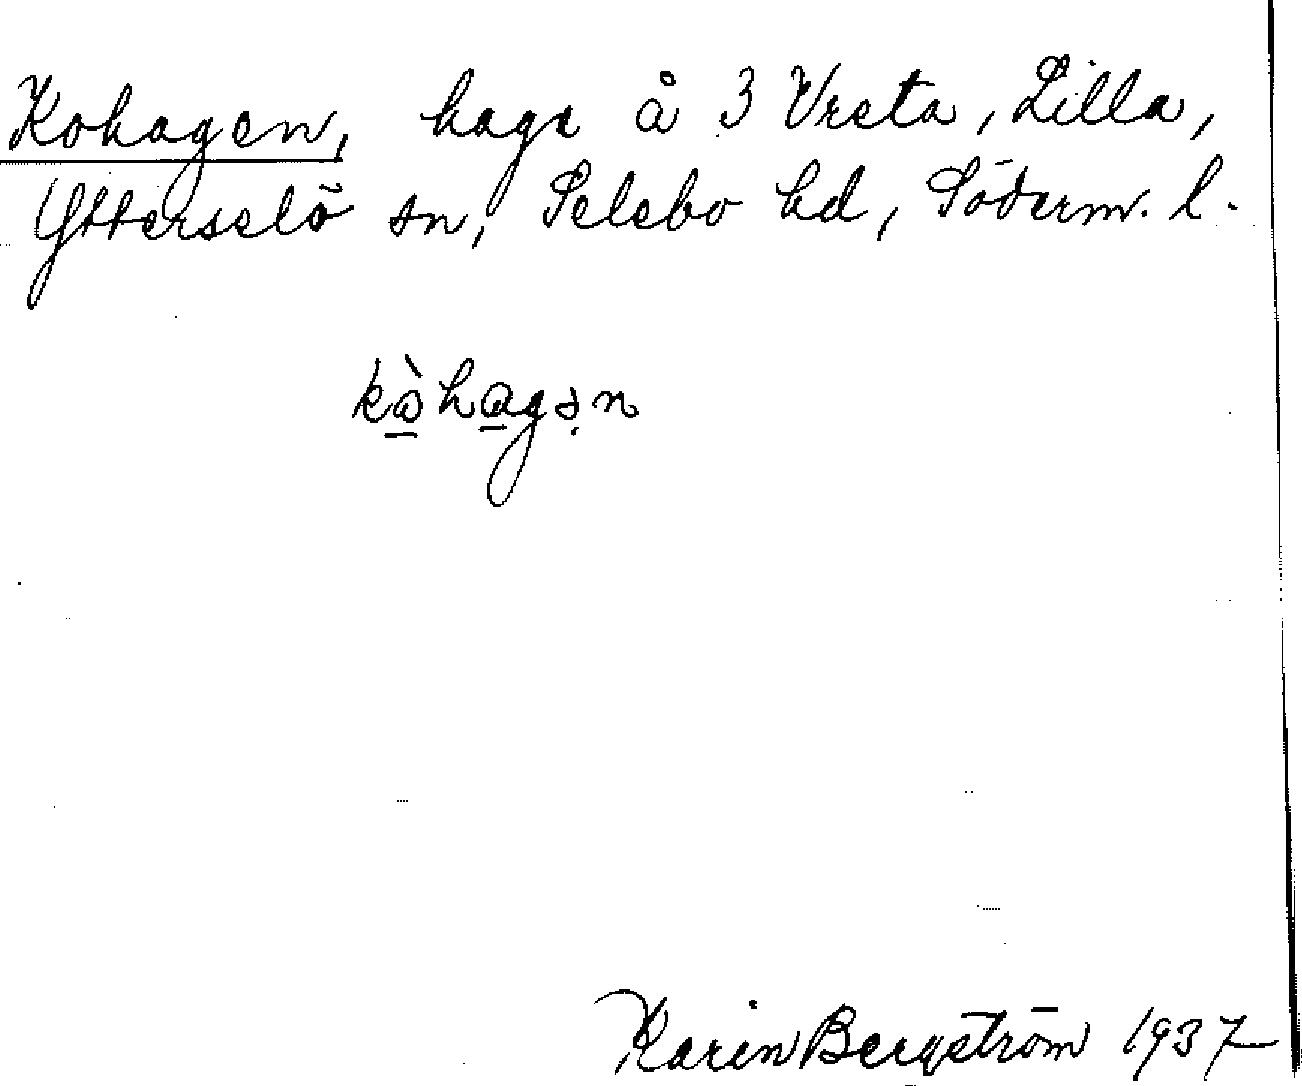 Kohagen, hage å 3 Vreta, Lilla,
Ytterselö sn, Selebo hd, Söderm. l.
kòhagən
Karin Bergström 1937